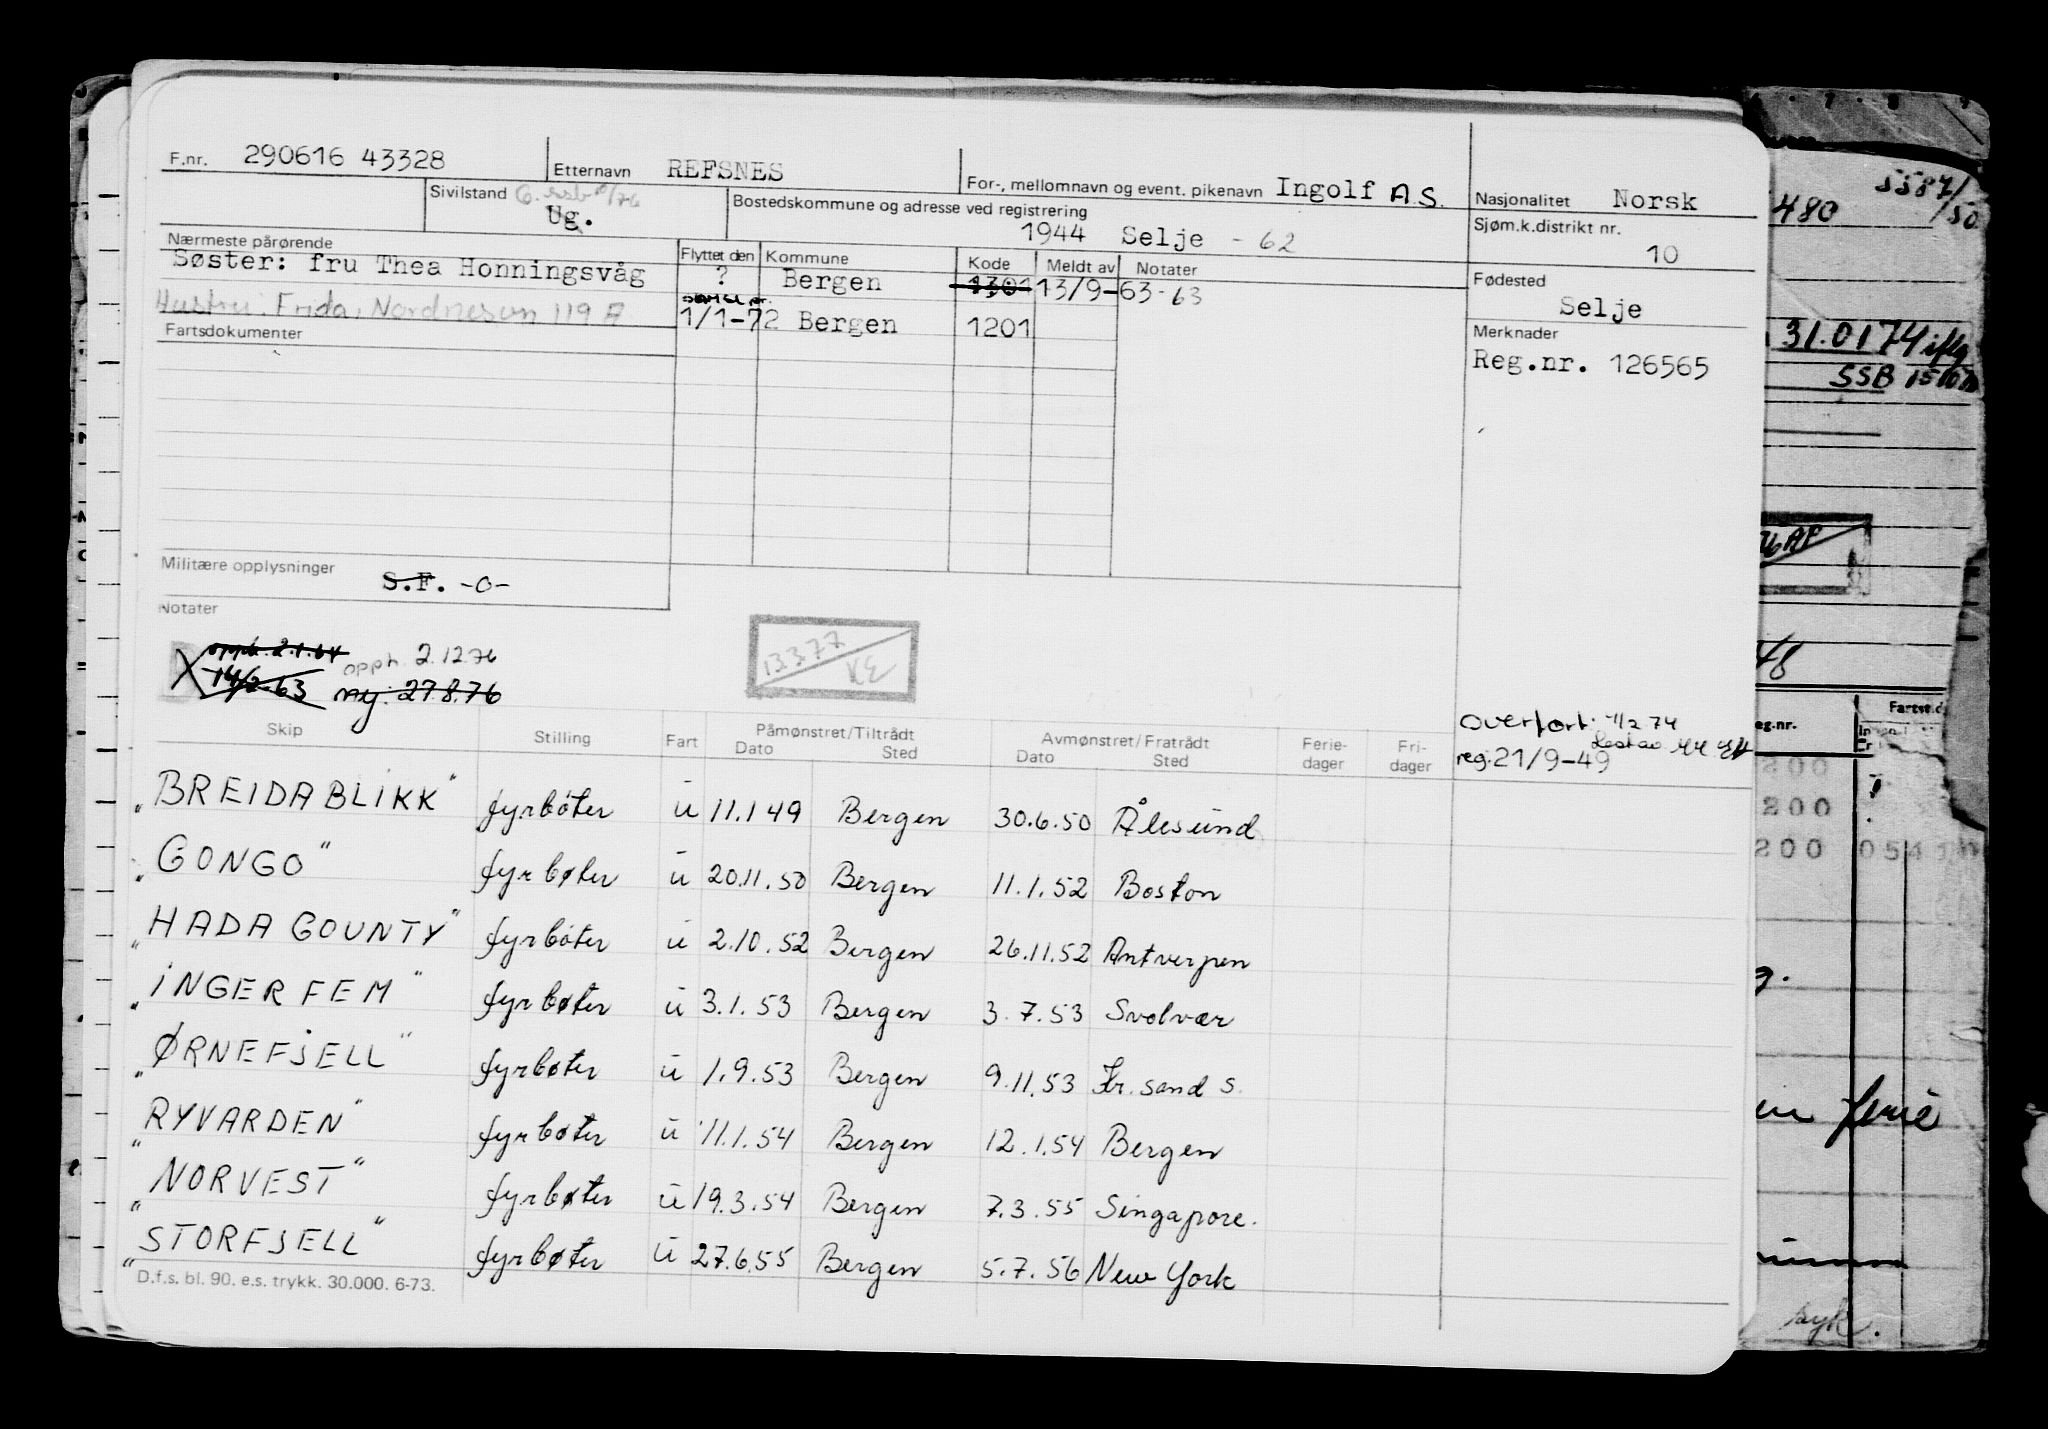 F.nr. 290616 43328 Etternavn REFSNES For-, mellomnavn og event. pikenavn Ingolf A.S. Nasjonalitet Norsk
Sivilstand Ug. Bostedskommune og adresse ved registrering 1944 Selje - 62 Sjøm.k.distrikt nr. 10
Nærmeste pårørende Flyttet den Kommune Kode Meldt av Notater Fødested Selje
Søster: fru Thea Honningsvåg ? Bergen 1301 13/9-63 - 63
Hustru. Frida, Nordnesvn 119 A 1/1-72 Bergen 1201 Merknader
Fartsdokumenter Reg.nr. 126565
Militære opplysninger S.F. -0-
Notater
opph. 2.1.64 opph. 2.12.76
14/2-63 my. 27.8.76
13377 KE
Overført. 1/2 74
reg. 21/9-49
Skip Stilling Fart Påmønstret/Tiltrådt Dato Sted Avmønstret/Fratrådt Dato Sted Ferie-dager Fri-dager
"BREIDABLIKK" fyrbøter u 11.1 49 Bergen 30.6.50 Ålesund
"GONGO" fyrbøter u 20.11.50 Bergen 11.1.52 Boston
"HADA GOUNTY" fyrbøter u 2.10.52 Bergen 26.11.52 Antverpen
"INGER FEM" fyrbøter u 3.1.53 Bergen 3.7.53 Svolvær
"ØRNEFJELL" fyrbøter u 1.9.53 Bergen 9.11.53 Kr.sand S.
"RYVARDEN" fyrbøter u 11.1.54 Bergen 12.1.54 Bergen
"NORVEST" fyrbøter u 19.3.54 Bergen 7.3.55 Singapore.
"STORFJELL" fyrbøter u 27.6.55 Bergen 5.7.56 New York
D.f.s. bl. 90. e.s. trykk. 30.000. 6-73.
5587/50
480
31.0174
SSB
48
eg.nr. Fartstid
200
200
200 054
ferie
syk.